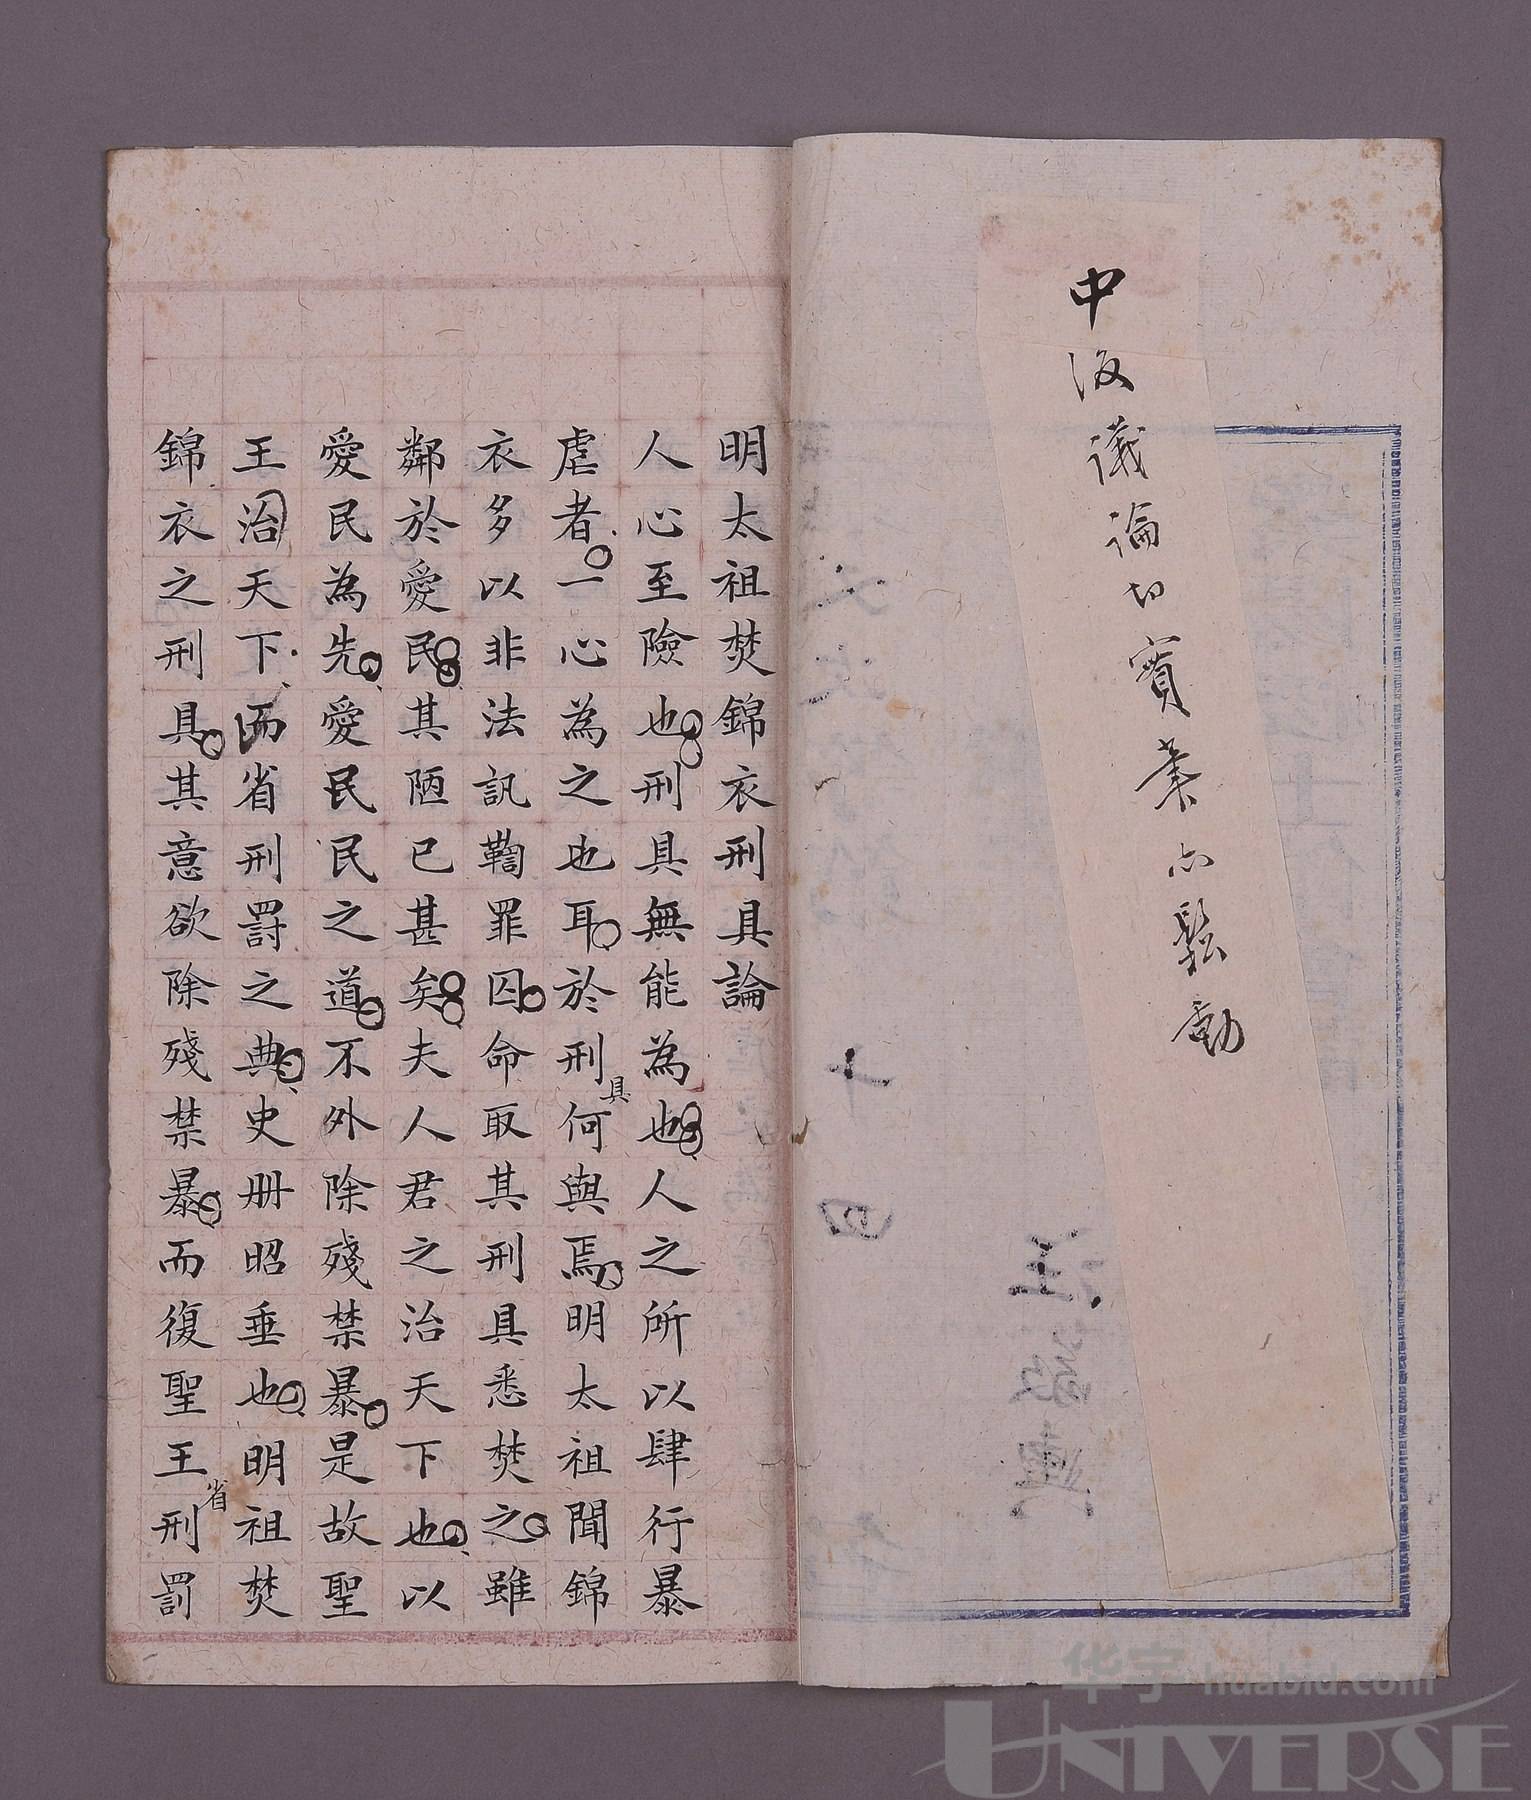 中後議論切實筆亦鬆動
明太祖焚錦衣刑具論
人心至險也刑具無能為也人之所以肆行暴
虐者一心為之也耳於刑具何與焉明太祖聞錦
衣多以非法訊鞫罪囚命取其刑具悉焚之雖
鄰於愛民其陋已甚矣夫人君之治天下也以
愛民為先愛民民之道不外除殘禁暴是故聖
王治天下而省刑罰之典史册昭垂也明祖焚
錦衣之刑具其意欲除殘禁暴而復聖王省刑罰
华宇 huabid.com
UNIVERSE